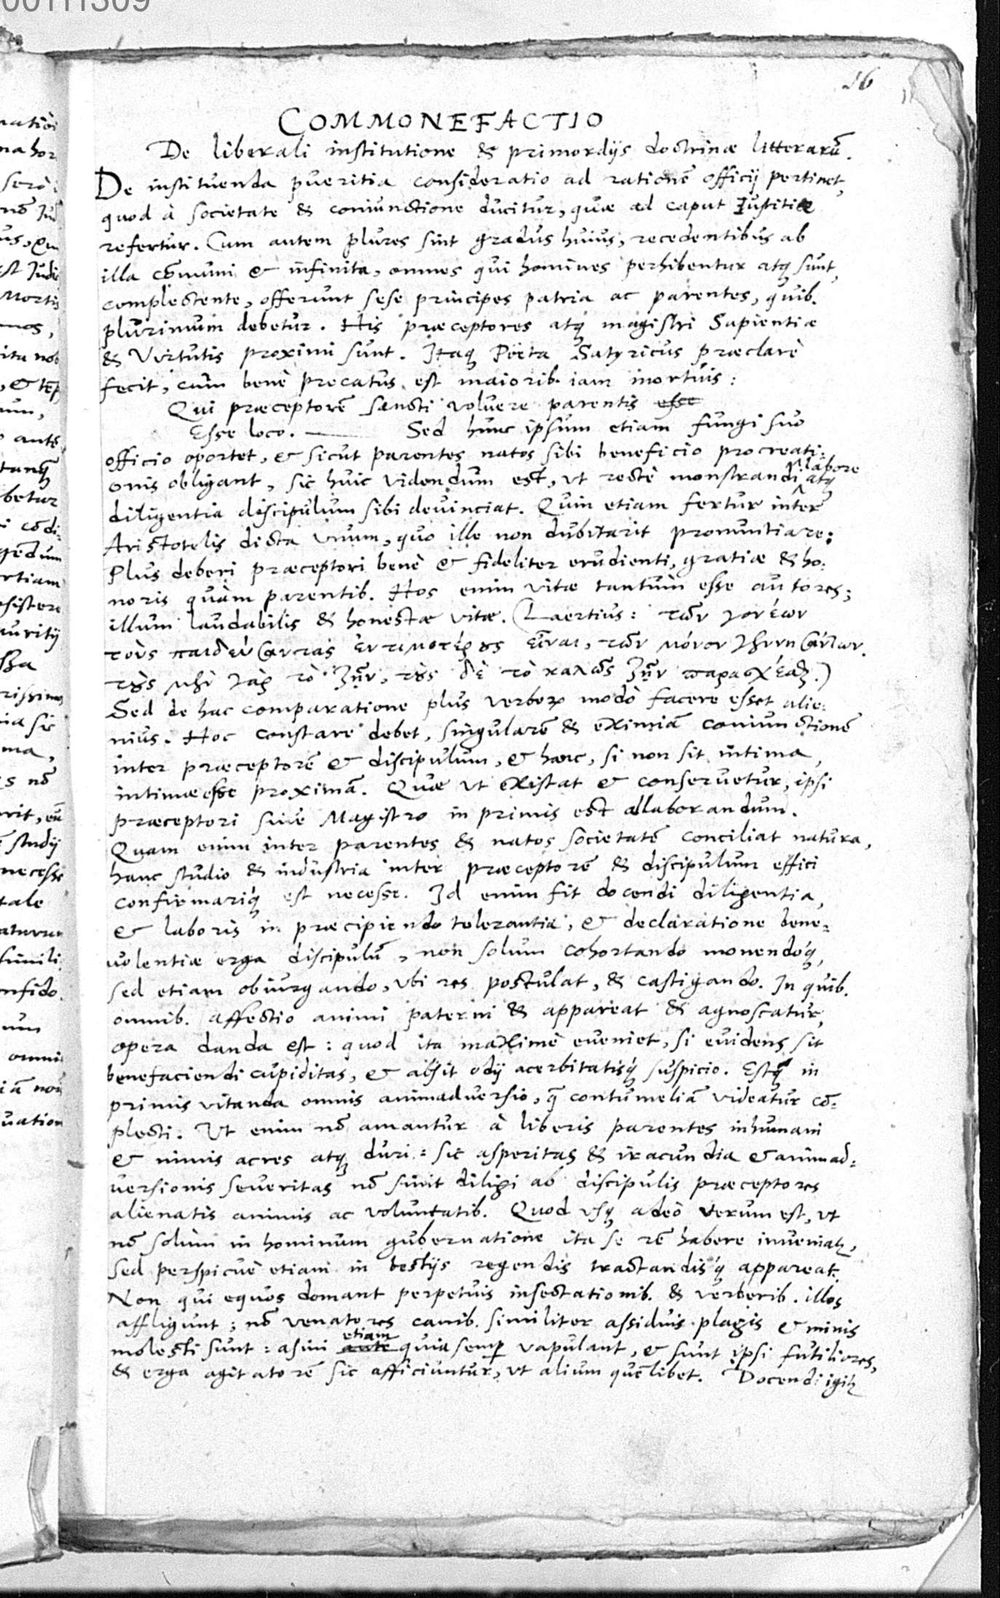 16
COMMONEFACTIO
De liberali institutione & primordijs doctrinæ litterarū.
De instituenda pueritia consideratio ad rationē officij pertinet,
quod à societate & coniunctione ducitur, quæ ad caput Iustitiæ
refertur. Cum autem plures sint gradus huius, recedentibus ab
illa cōmuni & infinita, omnes qui homines perhibentur atq; sunt,
complectente, offerunt sese principes patria ac parentes, quib.
plurimum debetur. His præceptores atq; magistri Sapientiæ
& Virtutis proximi sunt. Itaq; Poëta Satyricus præclarè
fecit, cùm benè precatus est maiorib. iam mortuis:
Qui præceptorē sancti voluere parentis esse
Esse loco. — Sed hunc ipsum etiam fungi suo
officio oportet, & sicut parentes natos sibi beneficio procreati-
onis obligant, sic huic videndum est, ut rectè monstrandi labore atq;
diligentia discipulum sibi deuinciat. Quin etiam fertur inter
Aristotelis dicta vnum, quo ille non dubitarit pronuntiare:
Plus deberi præceptori benè & fideliter erudienti, gratiæ & ho-
noris quàm parentib. Hos enim vitæ tantum esse autores;
illum laudabilis & honestæ vitæ. (Laertius: τῶν γονέων
τοὺς παιδεύσαντας ἐντιμοτέρους εἶναι, τῶν μόνον γεννησάντων.
τοὺς μὲν γὰρ τὸ ζῆν, τοὺς δὲ τὸ καλῶς ζῆν παρασχέσθαι.)
Sed de hac comparatione plus verborum modò facere esset alie-
nius. Hoc constare debet, singularē & eximiā coniunctionē
inter præceptorē & discipulum, & hanc, si non sit intima,
intimæ esse proximā. Quæ ut existat & conseruetur, ipsi
præceptori siue Magistro in primis est allaborandum.
Quam enim inter parentes & natos societatē conciliat natura,
hanc studio & industria inter præceptorē & discipulum effici
confirmariq; est necesse. Id enim fit docendi diligentia,
& laboris in præcipiendo tolerantia, & declaratione bene-
uolentiæ erga discipulū, non solum cohortando monendoq;,
sed etiam obiurgando, vbi res postulat, & castigando. In quib.
omnib. affectio animi paterni & appareat & agnoscatur,
opera danda est: quod ita maximè eueniet, si euidens sit
benefaciendi cupiditas, & absit odij acerbitatisq; suspicio. Estq; in
primis vitanda omnis animaduersio, q̄ contumeliā videatur cō-
plecti. Ut enim nō amantur à liberis parentes inhumani
& nimis acres atq; duri: sic asperitas & iracundia & animad-
uersionis seueritas nō sinit diligi ab discipulis præceptores
alienatis animis ac voluntatib. Quod vsq; adeò verum est, ut
nō solùm in hominum gubernatione ita se rē habere inueniat,
sed perspicuè etiam in bestijs regendis tractandisq; appareat.
Non qui equos domant perpetuis insectationib. & verberib. illos
affligunt: nō venatores canib. similiter assiduis plagis & minis
molesti sunt: asini etiam quia semp vapulant, & sunt ipsi futiliores,
& erga agitatorē sic afficiuntur, vt alium quēlibet. Docendi igit